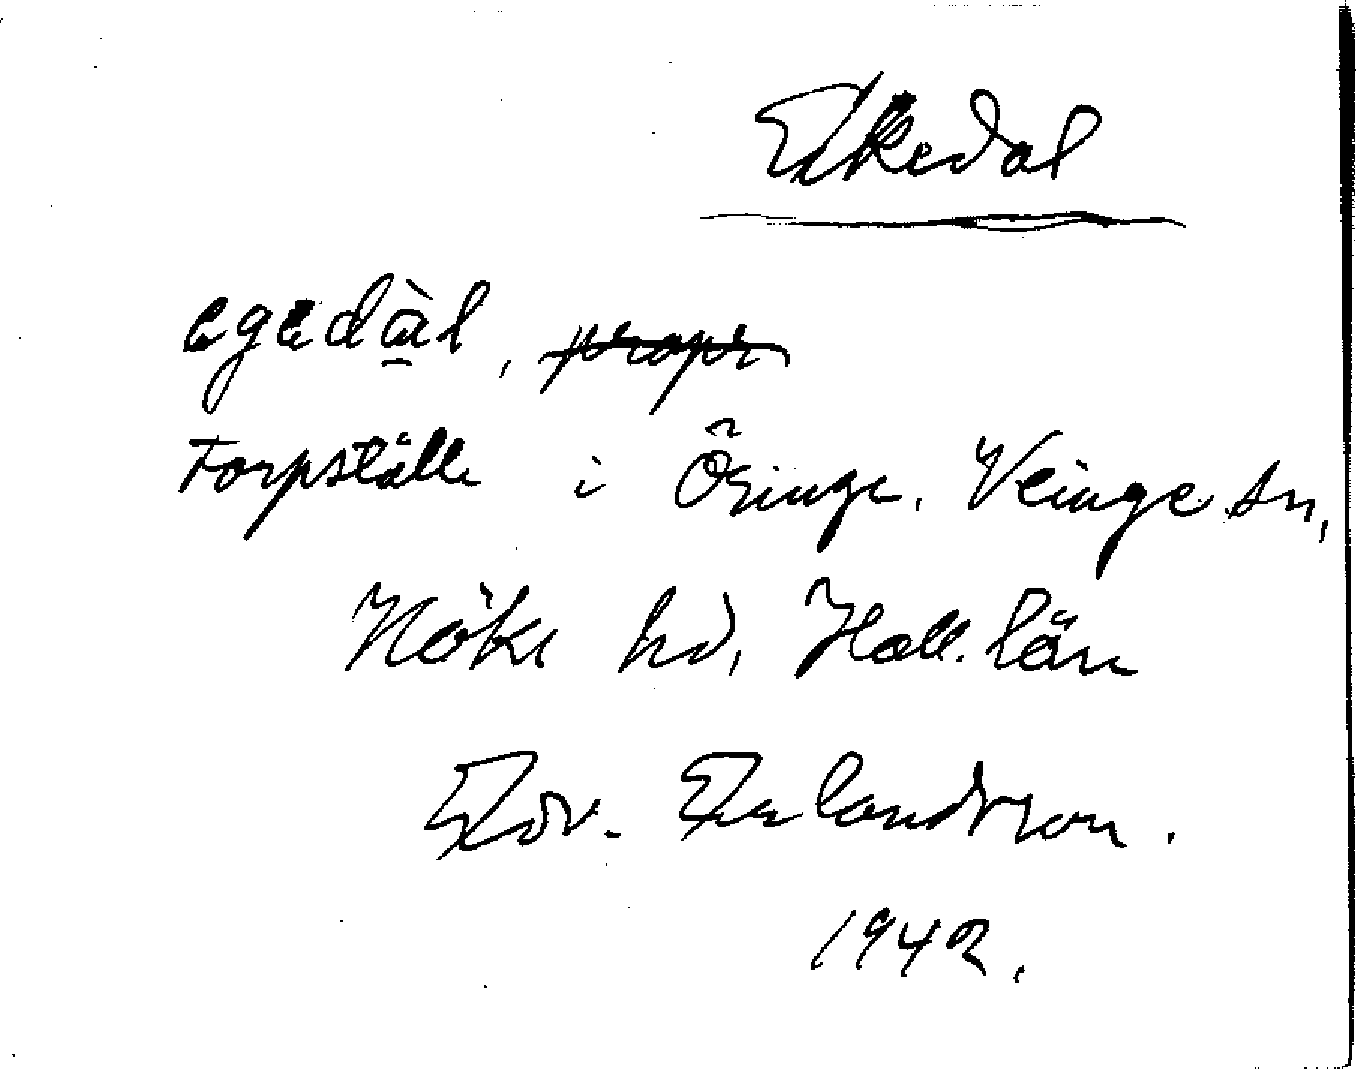 Ekedal
egedàl, propr
Torpställe i Öringe. Veinge sn,
Höks hd, Hall. län
Edv. Erlandsson.
1942.